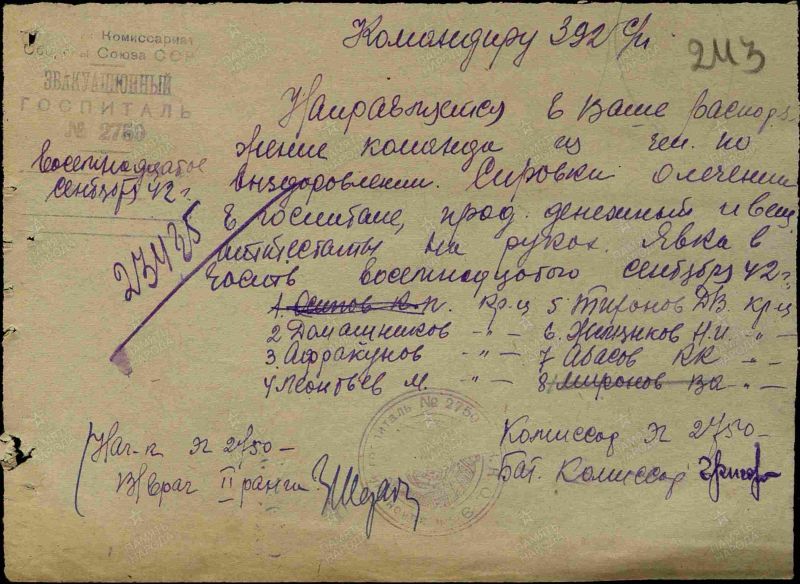 Комиссариат
Союза ССР
ЭВАКУАЦИОННЫЙ
ГОСПИТАЛЬ
№ 2750
восемнадцатое
сентября 42 г.
23425
Командиру 392 с/п
243
Направляется в Ваше распоря
жение команда из чел. по
выздоровлении. Справки о лечении
в госпитале, прод. денежный и вещ.
аттестаты на руках. Явка в
часть восемнадцатого сентября 42 г.
1. Осипов кр-ц 5 Тиронов Д.В. кр-ц
2 Домашников -"- 6. Н.И. -"-
3. Афракунов -"- 7 Абасов К.К -"-
4 Леонтьев М. -"- 8. Миронов Ва -"-
Нач-к ЭГ 2750 -
В/Врач II ранга
госпиталь № 2750
Комиссар ЭГ 2750 -
Бат. Комиссар